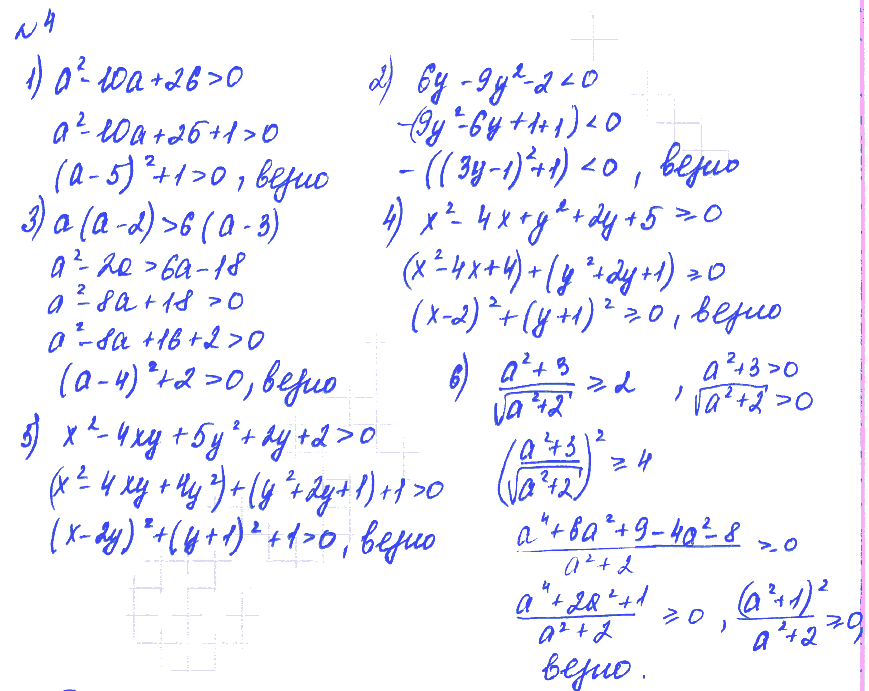 № 4
1) a² - 10a + 26 > 0
a² - 10a + 25 + 1 > 0
(a - 5)² + 1 > 0, верно
2) 6y - 9y² - 2 < 0
-(9y² - 6y + 1 + 1) < 0
-((3y - 1)² + 1) < 0, верно
3) a(a - 2) > 6(a - 3)
a² - 2a > 6a - 18
a² - 8a + 18 > 0
a² - 8a + 16 + 2 > 0
(a - 4)² + 2 > 0, верно
4) x² - 4x + y² + 2y + 5 ≥ 0
(x² - 4x + 4) + (y² + 2y + 1) ≥ 0
(x - 2)² + (y + 1)² ≥ 0, верно
5) x² - 4xy + 5y² + 2y + 2 > 0
(x² - 4xy + 4y²) + (y² + 2y + 1) + 1 > 0
(x - 2y)² + (y + 1)² + 1 > 0, верно
6) (a² + 3)/√(a² + 2) ≥ 2, a² + 3 > 0
√(a² + 2) > 0
((a² + 3)/√(a² + 2))² ≥ 4
(a⁴ + 6a² + 9 - 4a² - 8)/(a² + 2) ≥ 0
(a⁴ + 2a² + 1)/(a² + 2) ≥ 0, (a² + 1)²/(a² + 2) ≥ 0,
верно.